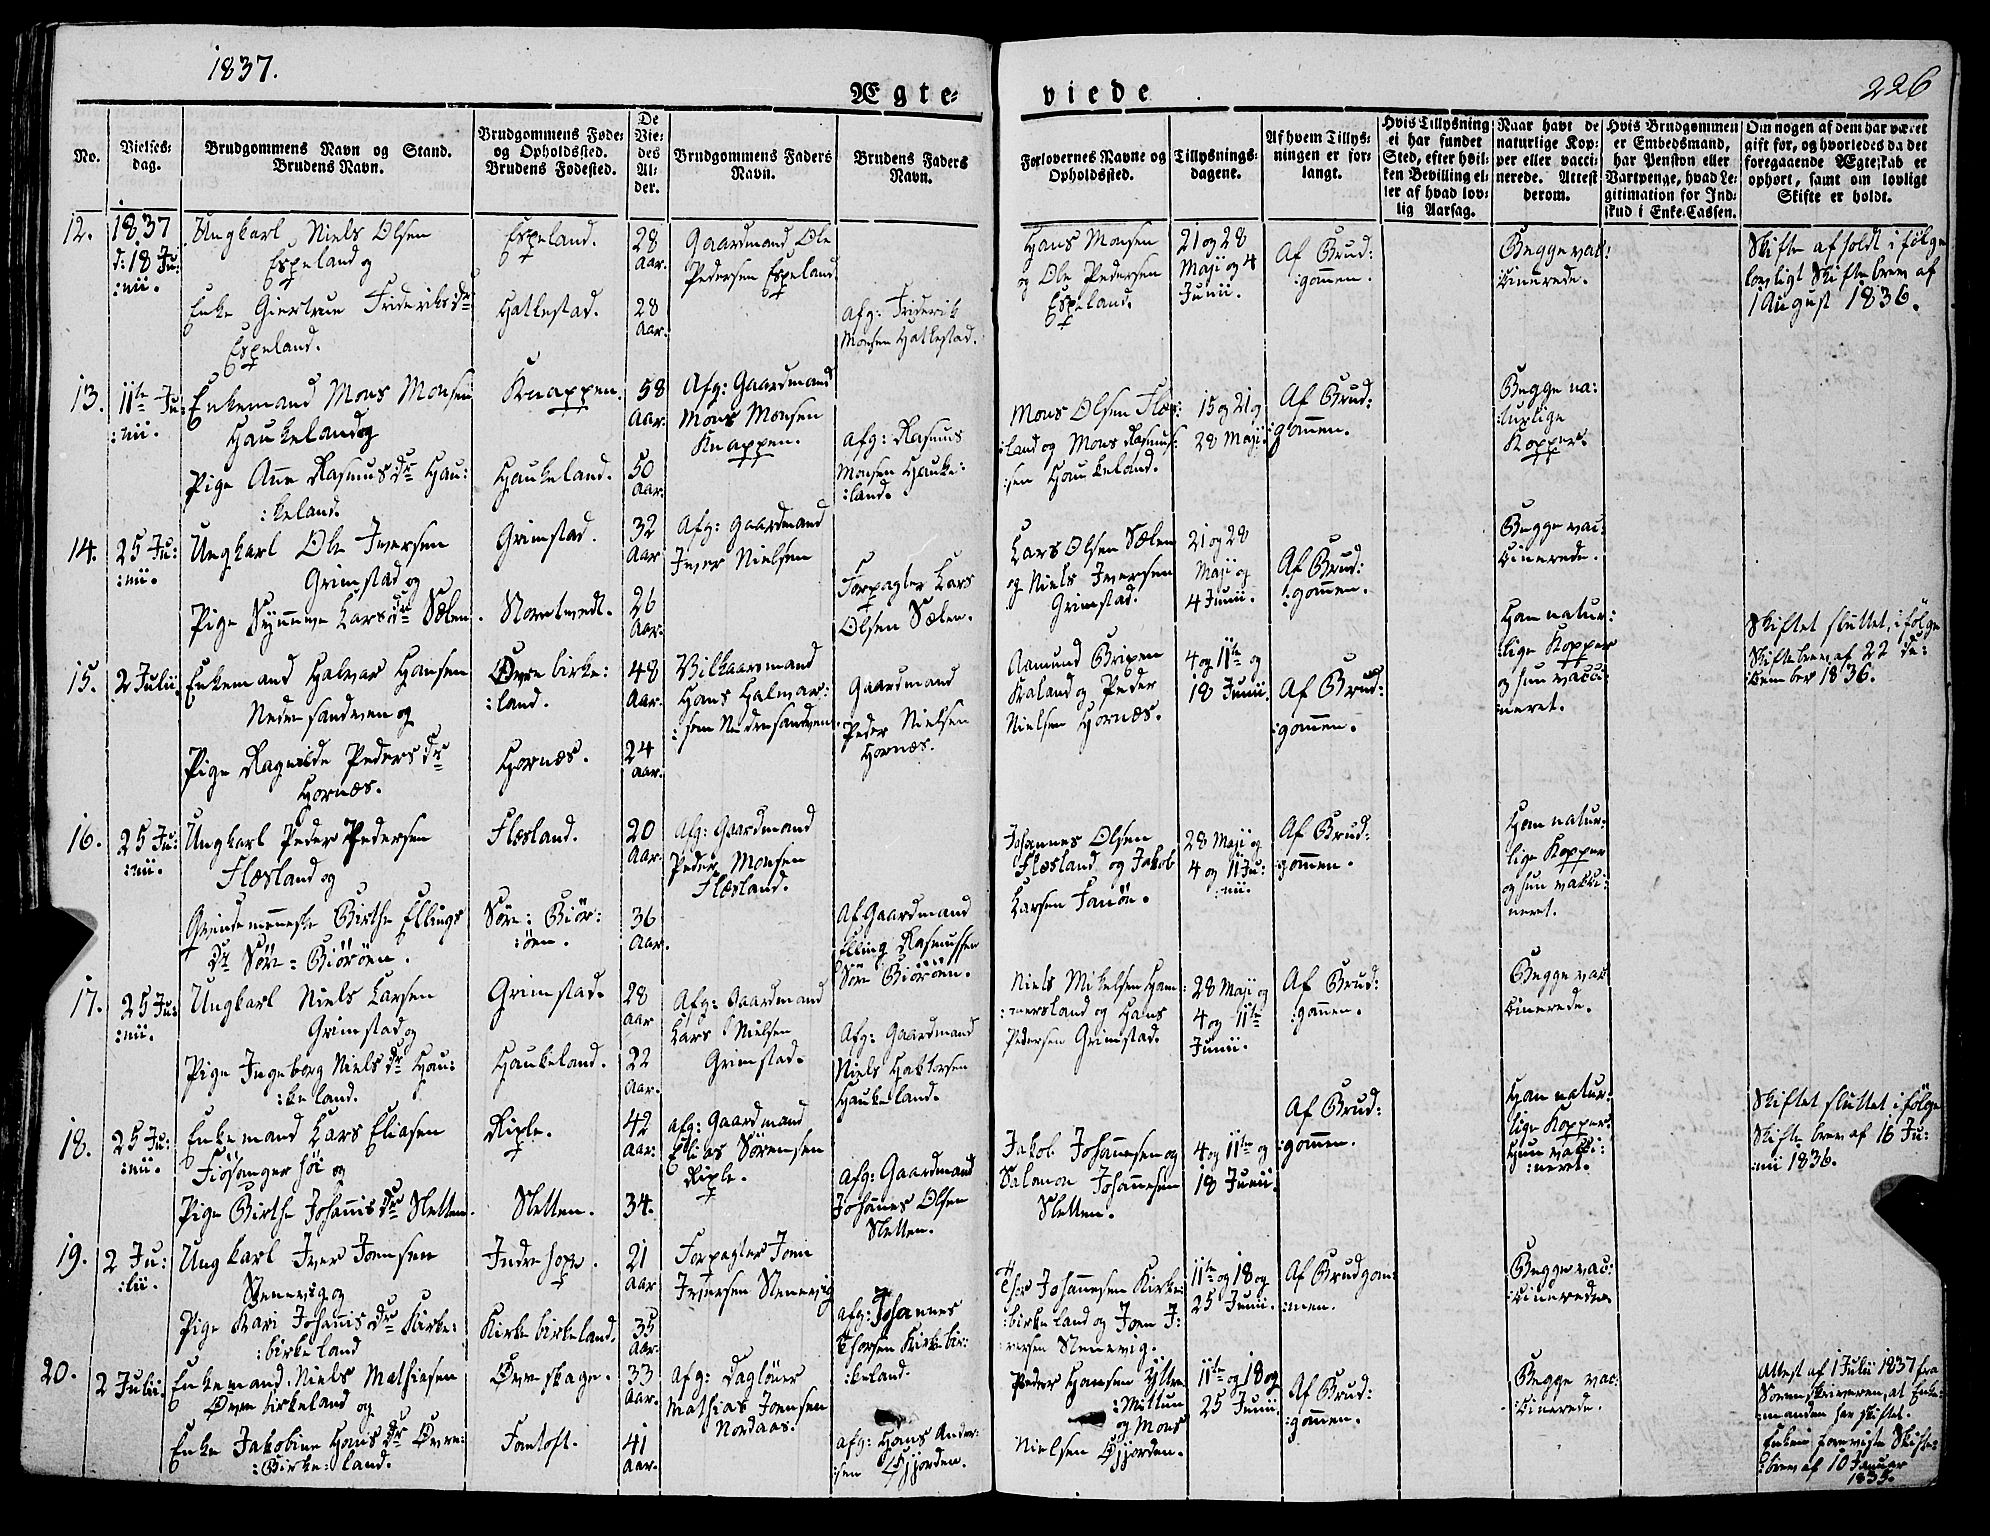 1837.
226
Ægte-
viede
No.
Vielses-
dag.
Brudgommens Navn og Stand.
Brudens Navn.
Brudgommens Føde-
og Opholdssted.
Brudens Fødested.
De
Vie-
des
Al-
der.
Brudgommens Faders
Navn.
Brudens Faders
Navn.
Forlovernes Navne og
Opholdssted.
Tillysnings-
dagene.
Af hvem Tillys-
ningen er for-
langt.
Hvis Tillysning
ei har fundet
Sted, efter hvil-
ken Bevilling el-
ler af hvad lov-
lig Aarsag.
Naar havt de
naturlige Kop-
per eller vacci-
nerede. Attest
derom.
Hvis Brudgommen
er Embedsmand,
har Pension eller
Vartpenge, hvad Le-
gitimation for Ind-
skud i Enke-Cassen.
Om nogen af dem har været
gift før, og hvorledes da det
foregaaende Ægteskab er
ophørt, samt om lovligt
Skifte er holdt.
12.
1837
d: 18 Ju:
:nii.
Ungkarl Niels Olsen
Espeland og
Enke Giertrue Frideriksdr
Espeland.
Espeland.
Hatlestad.
28
Aar.
28
Aar.
Gaardmand Ole
Pedersen Espeland
Afg: Friderik
Monsen Hatlestad.
Hans Monsen
og Ole Pedersen
Espeland.
21 og 28
Maji og 4
Junii.
Af Brud:
:gomen.
Begge vac:
cinerede.
Skifte afholdt i følge
lovligt Skiftebrev af
1 August 1836.
13.
11te Ju:
:nii.
Enkemand Mons Monsen
Haukeland og
Pige Ane Rasmusdr Hau:
:keland.
Knappen.
Haukeland.
58
Aar.
50
Aar.
Afg: Gaardmand
Mons Monsen
Knappen.
Afg: Rasmus
Monsen Hauke:
:land.
Mons Olsen Flæs:
:land og Mons Rasmus:
:sen Haukeland.
15 og 21 og
28 Maji.
Af Brud:
:gomen.
Begge na:
:turlige
Kopper.
14.
25 Ju:
:nii.
Ungkarl Ole Iversen
Grimstad og
Pige Synneve Larsdr Sælen.
Grimstad.
32
Aar
26
Aar.
Afg: Gaardmand
Iver Nielsen
Forpagter Lars
Olsen Sælen.
Lars Olsen Sælen
og Niels Iversen
Grimstad.
21 og 28
Maji og
4 Junii.
Af Brud:
:gomen.
Begge vac:
cinerede.
15.
2 Julii.
Enkemand Halvar Hansen
Nedre sandven og
Pige Ragnilde Pedersdr
Hornæs.
Øvre birke:
:land.
Hornæs.
48
Aar.
24
Aar.
Vilkaarsmand
Hans Halvar:
:sen Nedre sandven.
Gaardmand
Peder Nielsen
Hornæs.
Aamund Gripen
Kaland og Peder
Nielsen Hornæs.
4 og 11te og
18 Junii.
Af Brud:
:gomen.
Han natur:
:lige Kopper
og hun vacci:
:neret.
Skiftet sluttet, i følge
Skiftebrev af 22 De:
cember 1836.
16.
25 Ju:
:nii.
Ungkarl Peder Pedersen
Flæsland og
Qvindemenneske Birthe Ellings
Dr Søre-Biørøen.
Flæsland.
Søre-Biør:
:øen.
20
Aar.
36
Aar.
Afg: Gaardmand
Peder Monsen
Flæsland.
Af Gaardmand
Elling Rasmussen
Søre Biørøen.
Johannes Olsen
Flæsland og Jakob
Larsen Fanøe.
28 Maji og
4 og 11 Ju:
:nii.
Af Brud:
:gomen.
Han natur:
lige Kopper
og hun vacci:
neret.
17.
25 Ju:
:nii.
Ungkarl Niels Larsen
Grimstad og
Pige Ingeborg Nielsdr Hau:
:keland.
Grimstad.
Haukeland.
28
Aar
22
Aar.
Afg: Gaardmand
Lars Nielsen
Grimstad.
Afg: Gaardmand
Niels Haktorsen
Haukeland.
Niels Mikelsen Ham:
:mersland og Hans
Pedersen Grimstad.
28 Maji og
4 og 11te
Junii.
Af Brud:
:gomen.
Begge vac
cinerede.
18.
25 Ju:
:nii.
Enkemand Lars Eliasen
Fiøsanger høi og
Pige Birthe Johanisdr Sletten.
Riple.
Sletten.
42
Aar:
34.
Afg: Gaardmand
Elias Sørensen
Riple.
Afg: Gaardmand
Johanes Olsen
Sletten.
Jakob Johanesen og
Salomon Johannesen
Sletten.
4 og 11te og
18 Junii.
Af Brud:
:gomen.
Han natur:
lige Kopper.
Hun vacci:
:neret.
Skiftet sluttet i følge
Skifte brev af 16 Ju:
:nii 1836.
19.
2 Ju:
:lii.
Ungkarl Iver Joensen
Stenevig og
Pige Kari Johanisdr Kirke:
:birkeland
Indre hope.
Kirke birkeland.
21
Aar
35
Aar.
Forpagter Joen
Iversen Stenevig
Afg: Johannes
Thorsen Kirke bir:
:keland.
Thor Johannesen Kirke:
:birkeland og Joen I:
:versen Stenevig.
11te og 18 og
25 Junii.
Af Brudgom:
:men.
Begge vac:
:cinerede.
20.
2 Julii.
Enkemand Niels Mathiasen
Øvre birkeland og
Enke Jakobine Hansdr Øvre:
:Birke:land.
Øvre skage.
Fantoft.
33
Aar.
41
Aar.
Afg: Dagløner
Mathias Joensen
Nordaas.
Afg: Hans Ander:
:sen Øjjorden.
Peder Hansen Ytre
:Mittun
og Mons
Nielsen Øjjorden.
11te og 18 og
25 Junii.
Af Brud:
:gomen.
Begge vac:
:cinerede.
Attest af 1 Julii 1837 fra
Sorenskriveren, at Enke:
:manden har skiftet.
Enken foreviste Skifte:
:brev af 10 Januar
1835.